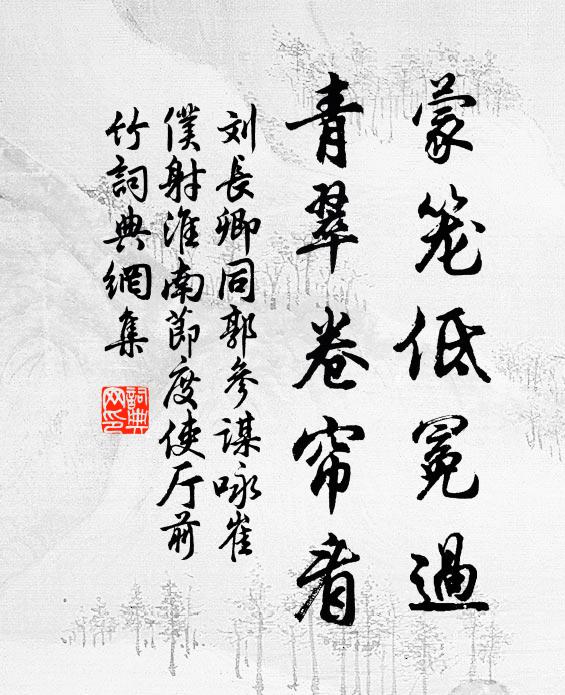 蒙笼低冕過
青翠卷帘看
刘長卿同郭參謀咏崔
僕射淮南節度使厅前
竹詞典網集
詞典
网印